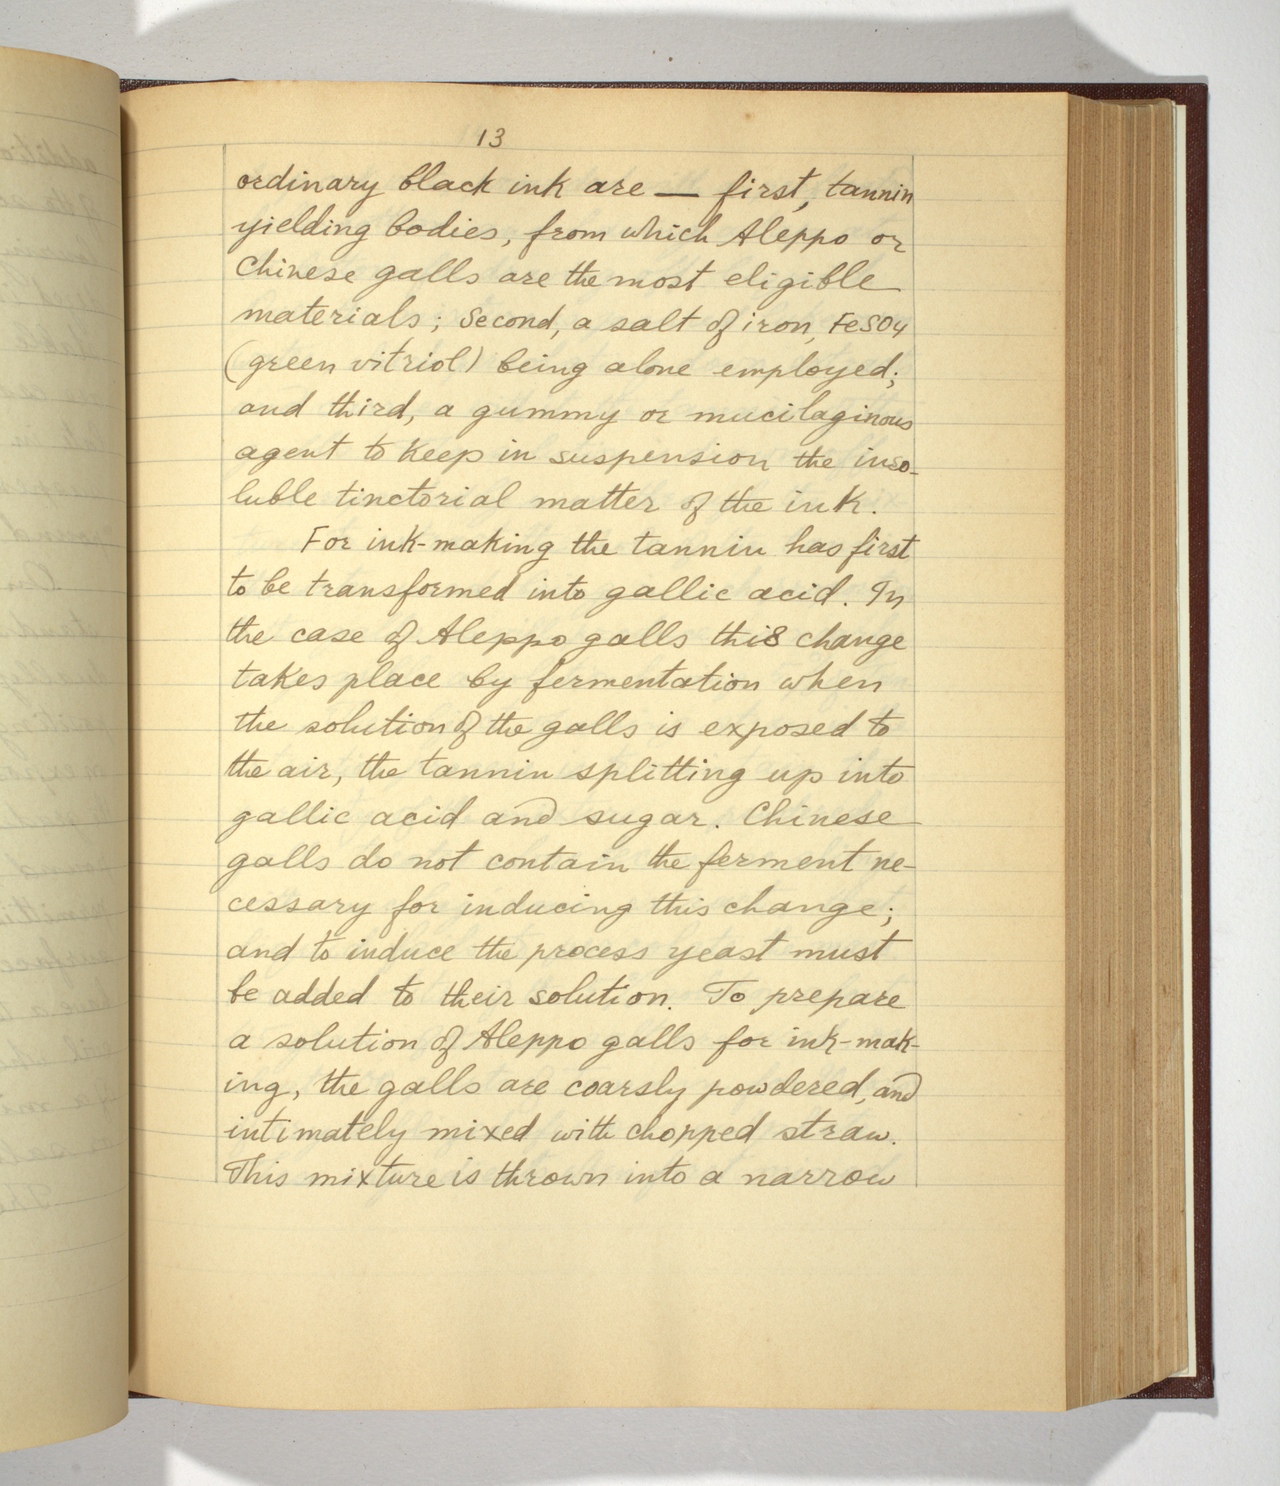 13
ordinary black ink are — first, tannin
yielding bodies, from which Aleppo or
Chinese galls are the most eligible
materials; Second, a salt of iron, FeSO4
(green vitriol) being alone employed;
and third, a gummy or mucilaginous
agent to keep in suspension the inso-
luble tinctorial matter of the ink.
For ink-making the tannin has first
to be transformed into gallic acid. In
the case of Aleppo galls this change
takes place by fermentation when
the solution of the galls is exposed to
the air, the tannin splitting up into
gallic acid and sugar. Chinese
galls do not contain the ferment ne-
cessary for inducing this change;
and to induce the process yeast must
be added to their solution. To prepare
a solution of Aleppo galls for ink-mak-
ing, the galls are coarsly powdered, and
intimately mixed with chopped straw.
This mixture is thrown into a narrow